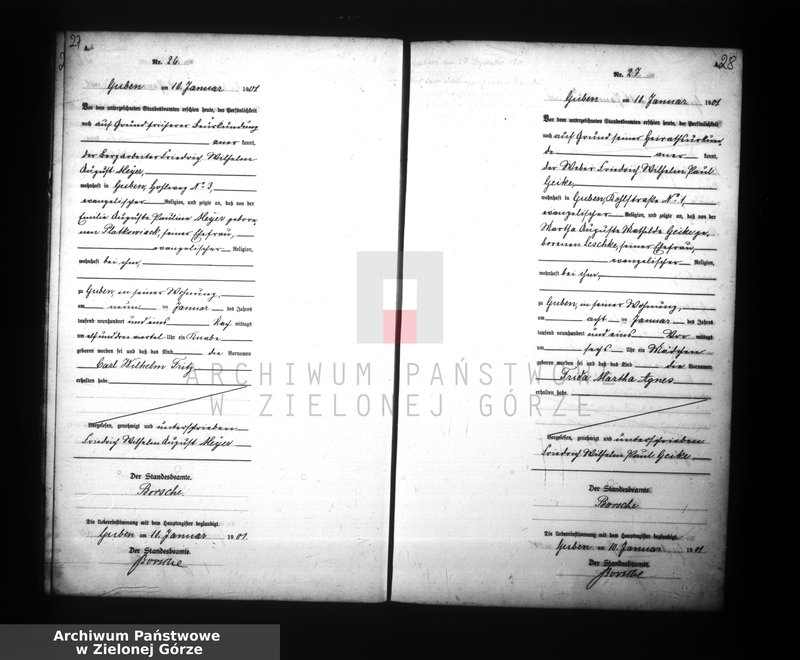 27
A.
Nr. 26
Guben am 10. Januar 1901
Vor dem unterzeichneten Standesbeamten erschien heute, der Persönlichkeit
nach auf Grund früherer Beurkundung
aner kannt,
der Bergarbeiter Friedrich Wilhelm
August Meyer,
wohnhaft in Guben, Hohlweg No 3,
evangelischer Religion, und zeigte an, daß von der
Emilie Auguste Pauline Meyer gebore-
nen Platkowiack, seiner Ehefrau,
evangelischer Religion,
wohnhaft bei ihm,
zu Guben, in seiner Wohnung,
am neun ten Januar des Jahres
tausend neunhundert und eins Nach mittags
um elf und drei viertel Uhr ein Knabe
geboren worden sei und daß das Kind die Vornamen
Carl Wilhelm Fritz
erhalten habe
Vorgelesen, genehmigt und unterschrieben
Friedrich Wilhelm August Meyer
Der Standesbeamte.
Borsche.
Die Uebereinstimmung mit dem Hauptregister beglaubigt.
Guben am 10. Januar 1901
Der Standesbeamte.
Borsche
28
A.
Nr. 27
Guben am 10. Januar 1901
Vor dem unterzeichneten Standesbeamten erschien heute, der Persönlichkeit
nach auf Grund seiner Heirathsurkun-
de aner kannt,
der Weber Friedrich Wilhelm Paul
Geike,
wohnhaft in Guben, Kohlstraße No 1,
evangelischer Religion, und zeigte an, daß von der
Martha Auguste Mathilde Geike ge-
borenen Leschke, seiner Ehefrau,
evangelischer Religion,
wohnhaft bei ihm,
zu Guben, in seiner Wohnung,
am acht ten Januar des Jahres
tausend neunhundert und eins Vor mittags
um sechs Uhr ein Mädchen
geboren worden sei und daß das Kind die Vornamen
Frida Martha Agnes
erhalten habe
Vorgelesen, genehmigt und unterschrieben
Friedrich Wilhelm Paul Geike
Der Standesbeamte.
Borsche.
Die Uebereinstimmung mit dem Hauptregister beglaubigt.
Guben am 10. Januar 1901
Der Standesbeamte.
Borsche
ARCHIWUM PAŃSTWOWE
W ZIELONEJ GÓRZE
Archiwum Państwowe
w Zielonej Górze